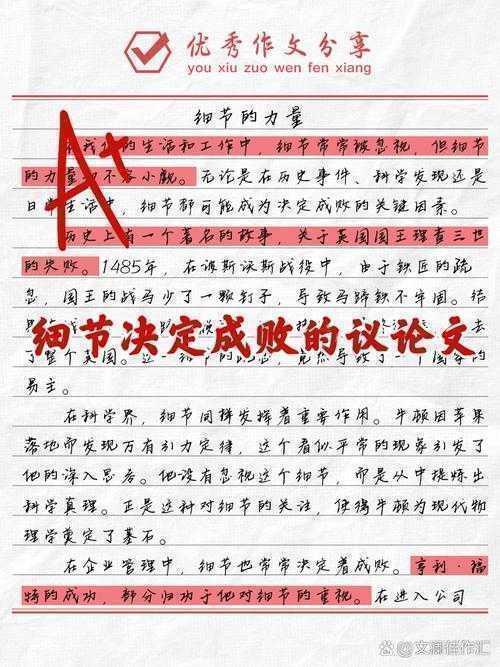 优秀作文分享
you xiu zuo wen fen xiang
细节的力量
A+
我 的生活和工作中，细节常常被忽视，但细节
的力量 不容小觑。无论是在历史事件、科学发现还是
日 生活中，细节都可能成为决定成败的关键因素。
历史上有一个著名的故事，关于英国国王理查三世
的失败。1485年，在波斯沃斯战役中，由于铁匠的疏
忽，国王的战马少了一颗钉子，导致马蹄铁不牢固。结
细节决定成败的议论文
了整个英国。 一个国家的
易主。
在科学界，细节同样发挥着重要作用。牛顿因苹果
落地而发现万有引力定律，这个看似平常的现象引发了
他的深入思考。他没有忽视这个细节，而是从中提炼出
科学真理。正是这种对细节的关注，使得牛顿为现代物
理学奠定了基石。
在企业管理中，细节也常常决定着成败。亨利·福
特的成功，部分归功于他对细节的重视。在进入公司
@文澜佳作汇